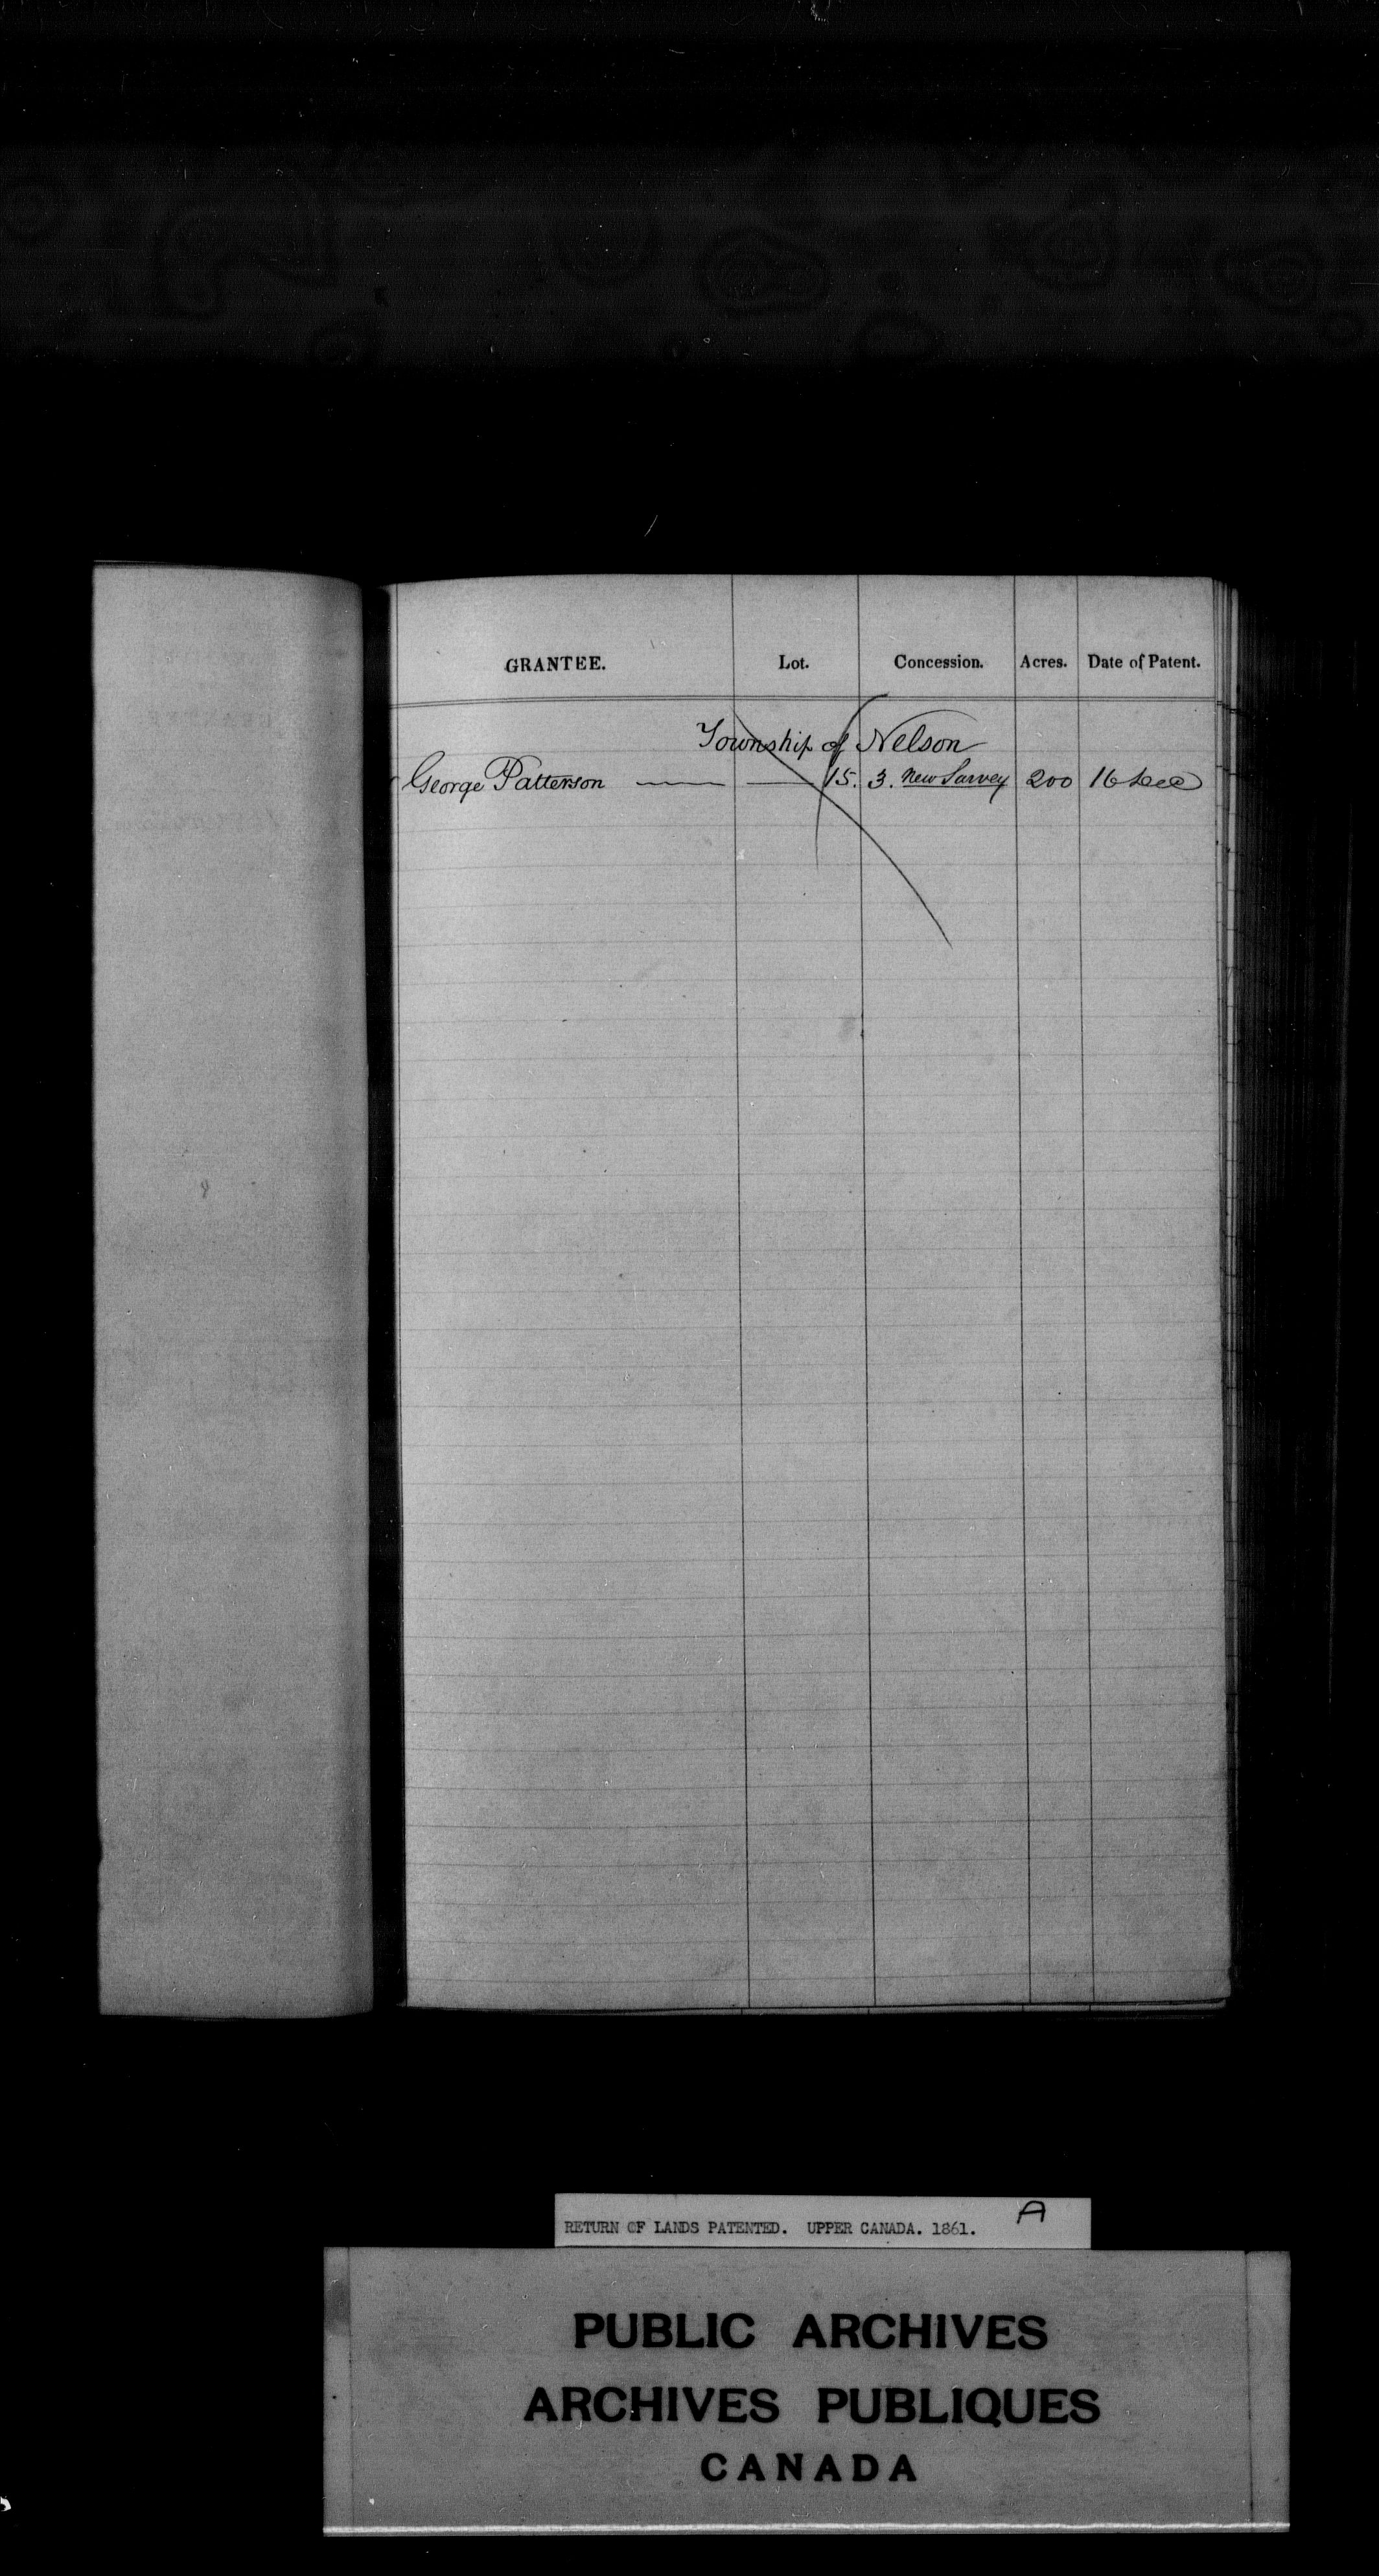 GRANTEE. Lot. Concession. Acres. Date of Patent.
Township of Nelson
George Patterson 15. 3. New Survey 200 16
RETURN OF LANDS PATENTED. UPPER CANADA. 1861. A
PUBLIC ARCHIVES
ARCHIVES PUBLIQUES
CANADA